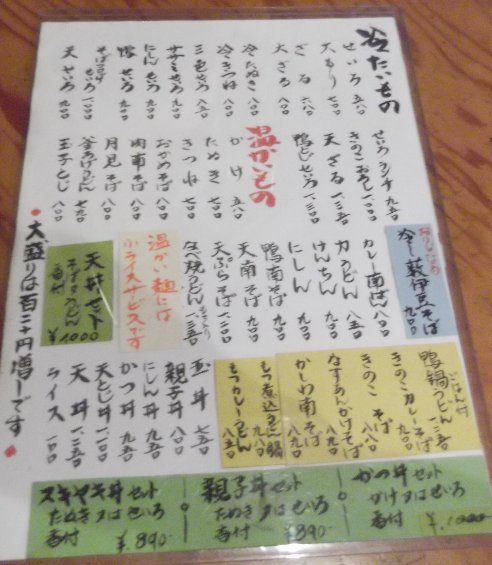 冷たいもの
せいろ 五八〇
大もり 七〇〇
ざる 六八〇
大ざる 八〇〇
冷たぬき 八〇〇
冷きつね 八〇〇
三色せいろ 八五〇
ササミせいろ 九〇〇
にしんせいろ 九〇〇
鴨せいろ 九〇〇
せいろ 一、一〇〇
天せいろ 九〇〇
せいろランチ 九五〇
きのこおろし 一、〇〇〇
天ざる 一、三五〇
鴨とじせいろ 一、三〇〇
温かいもの
かけ 五八〇
たぬき 七〇〇
きつね 七〇〇
おかめそば 八〇〇
肉南そば 八〇〇
月見そば 八〇〇
釜あげうどん 六五〇
玉子とじ 八〇〇
冷し藪伊豆そば 九〇〇
カレー南ばん 八〇〇
力うどん 八五〇
けんちん 九〇〇
にしん 九〇〇
鴨南そば 九〇〇
天南そば 九〇〇
天ぷらそば 一、二〇〇
なべ焼うどん 一、三五〇
温かい麺には
小ライスサービスです
天丼セット
そば又はうどん
香付
¥1000
大盛りは百二十円増しです
ごはん付
鴨鍋うどん 一、三五〇
きのこカレーそば 九八〇
きのこそば 八八〇
なすあんかけそば 九〇〇
かしわ南そば 八五〇
もつ煮込うどん鍋 九八〇
もつカレーうどん 八五〇
玉丼 七五〇
親子丼 八〇〇
にしん丼 九五〇
かつ丼 九五〇
天とじ丼 一、二〇〇
天丼 一、二五〇
ライス 一〇〇
かつ丼セット
かけ又はせいろ
香付 ¥1,000
親子丼セット
たぬき又はせいろ
香付 ¥890-
スキヤキ丼セット
たぬき又はせいろ
香付 ¥890-